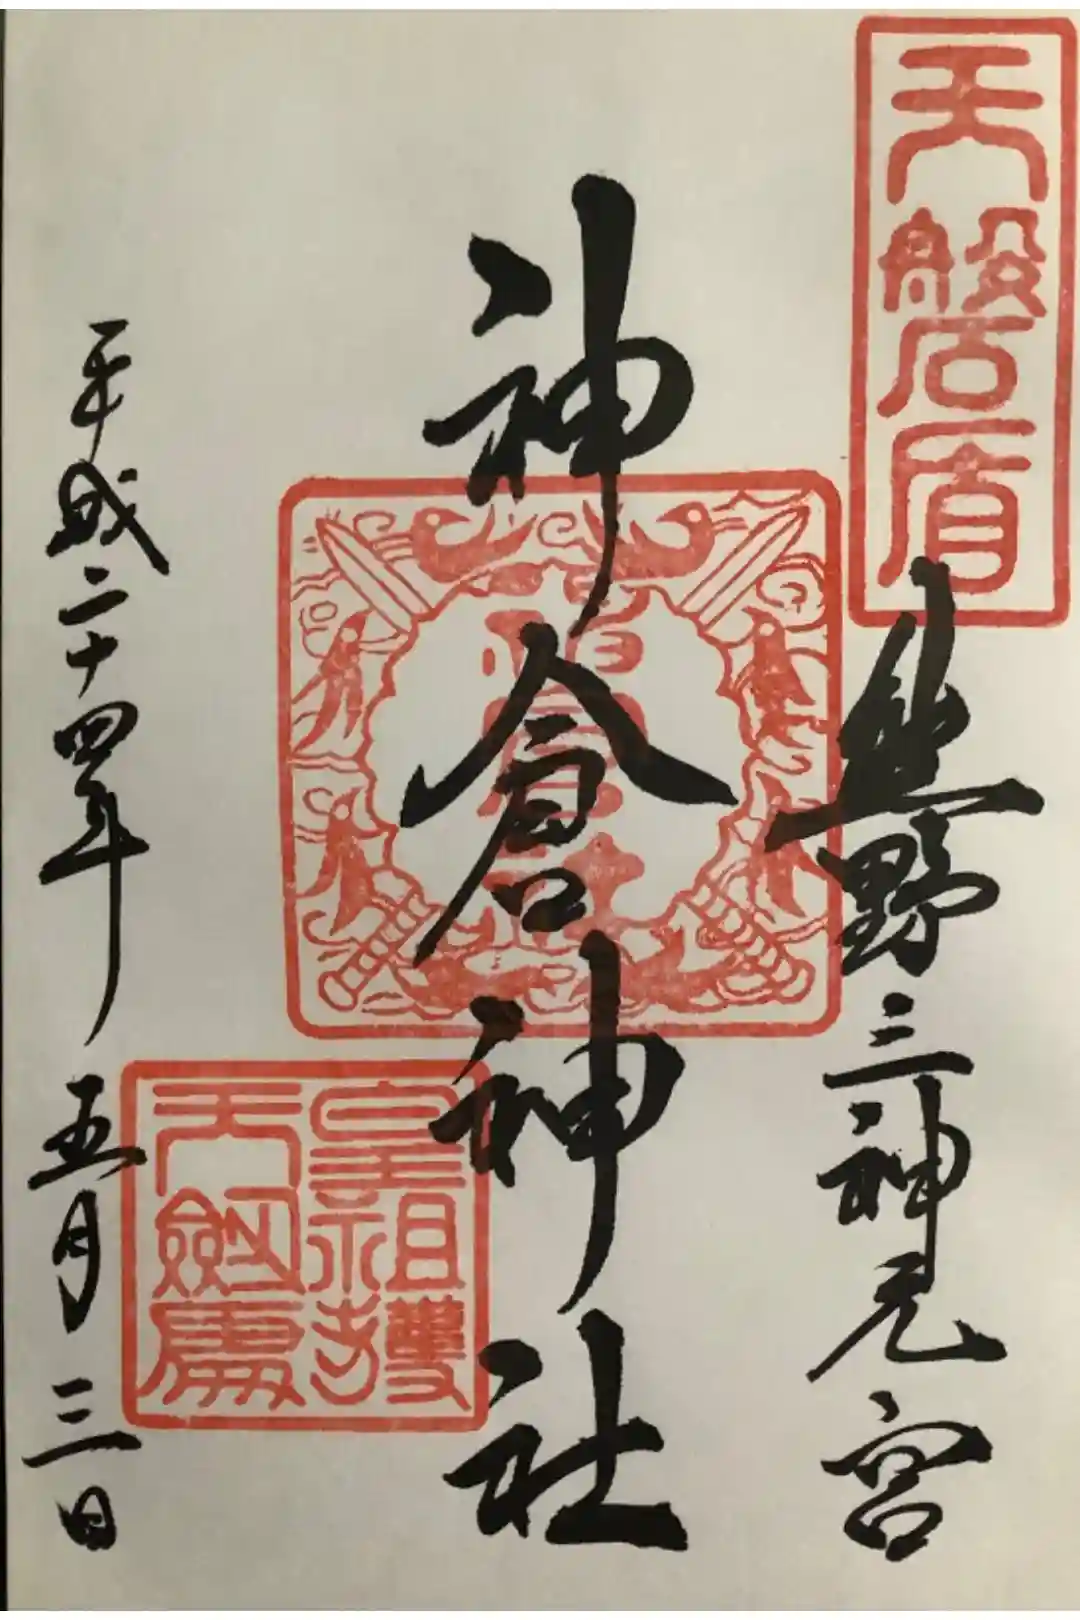 天磐盾
熊野三神元宮
神倉神社
皇祖
護
天劔
平成二十四年 五月 三日